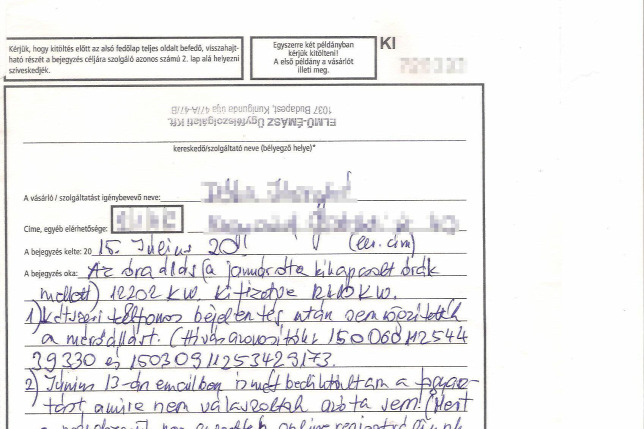 Kérjük, hogy kitöltés előtt az alsó fedőlap teljes oldalt befedő, visszahajt-
ható részét a bejegyzés céljára szolgáló azonos számú 2. lap alá helyezni
szíveskedjék.
Egyszerre két példányban
kérjük kitölteni!
A első példány a vásárlót
illeti meg.
KI
ELMŰ-ÉMÁSZ Ügyfélszolgálati Kft.
1037 Budapest, Kunigunda útja 47/A-47/B
kereskedő/szolgáltató neve (bélyegző helye)*
A vásárló / szolgáltatást igénybevevő neve:
Címe, egyéb elérhetősége:
A bejegyzés kelte: 20 15. Július 20. (lev. cím)
A bejegyzés oka: Az óraállás (a január óta kikapcsolt órák
mellett) 12202 KW. Kifizetve
1) Kétszeri telefonos bejelentés után sem rögzítették
a mérőállást. (Hívásazonosítók: 150060112544
39330 és 15030911253429173.
2) Június 13-án emailben ismét bediktáltam a fogyasz-
tást, amire nem válaszoltak azóta sem. (Mert